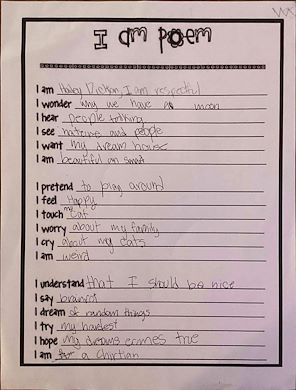 I am poem
I am Haley Dickson, I am respectful
I wonder why we have a moon
I hear people talking
I see and people
I want my dream house
I am beautiful an smart
I pretend to play around
I feel Happy
I touch my Cat
I worry about my family
I cry about my cats
I am weird
I understand that I should be nice
I say
I dream of random things
I try my hardest
I hope my dreams comes true
I am a Chirtian